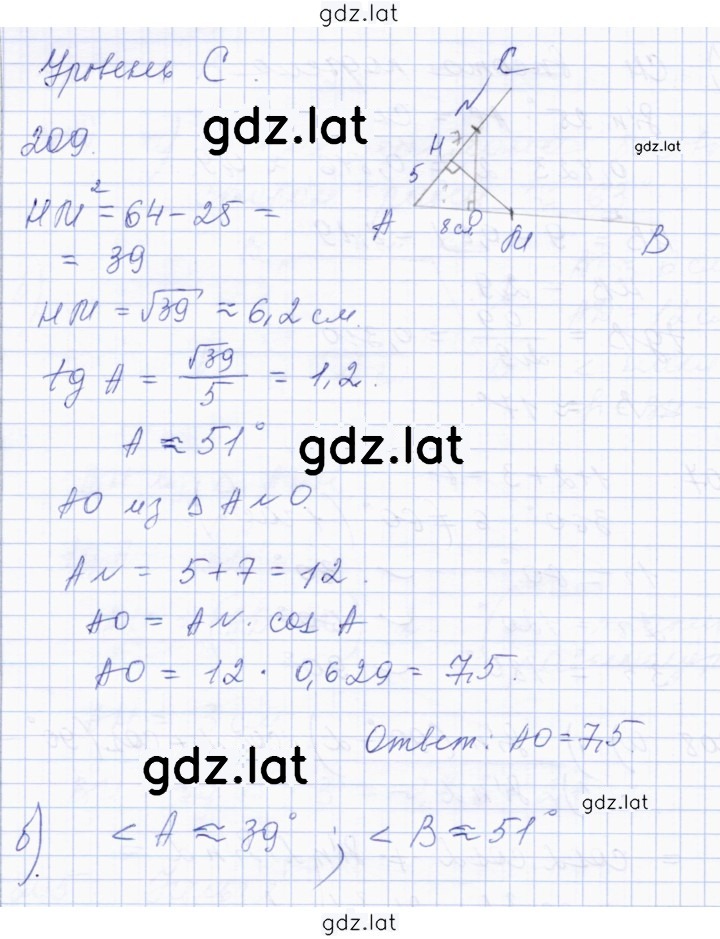 gdz.lat
Уровень С.
gdz.lat
209.
gdz.lat
С
N
7
Н
5
А
8 см
О
М
В
НМ² = 64 - 25 =
= 39
НМ = √39 ≈ 6,2 см.
tg A = √39/5 = 1,2.
A ≈ 51°
gdz.lat
АО из Δ ANO.
AN = 5 + 7 = 12.
AO = AN · cos A
AO = 12 · 0,629 = 7,5.
Ответ: АО = 7,5.
gdz.lat
gdz.lat
б). < A ≈ 39° ; < B ≈ 51°
gdz.lat